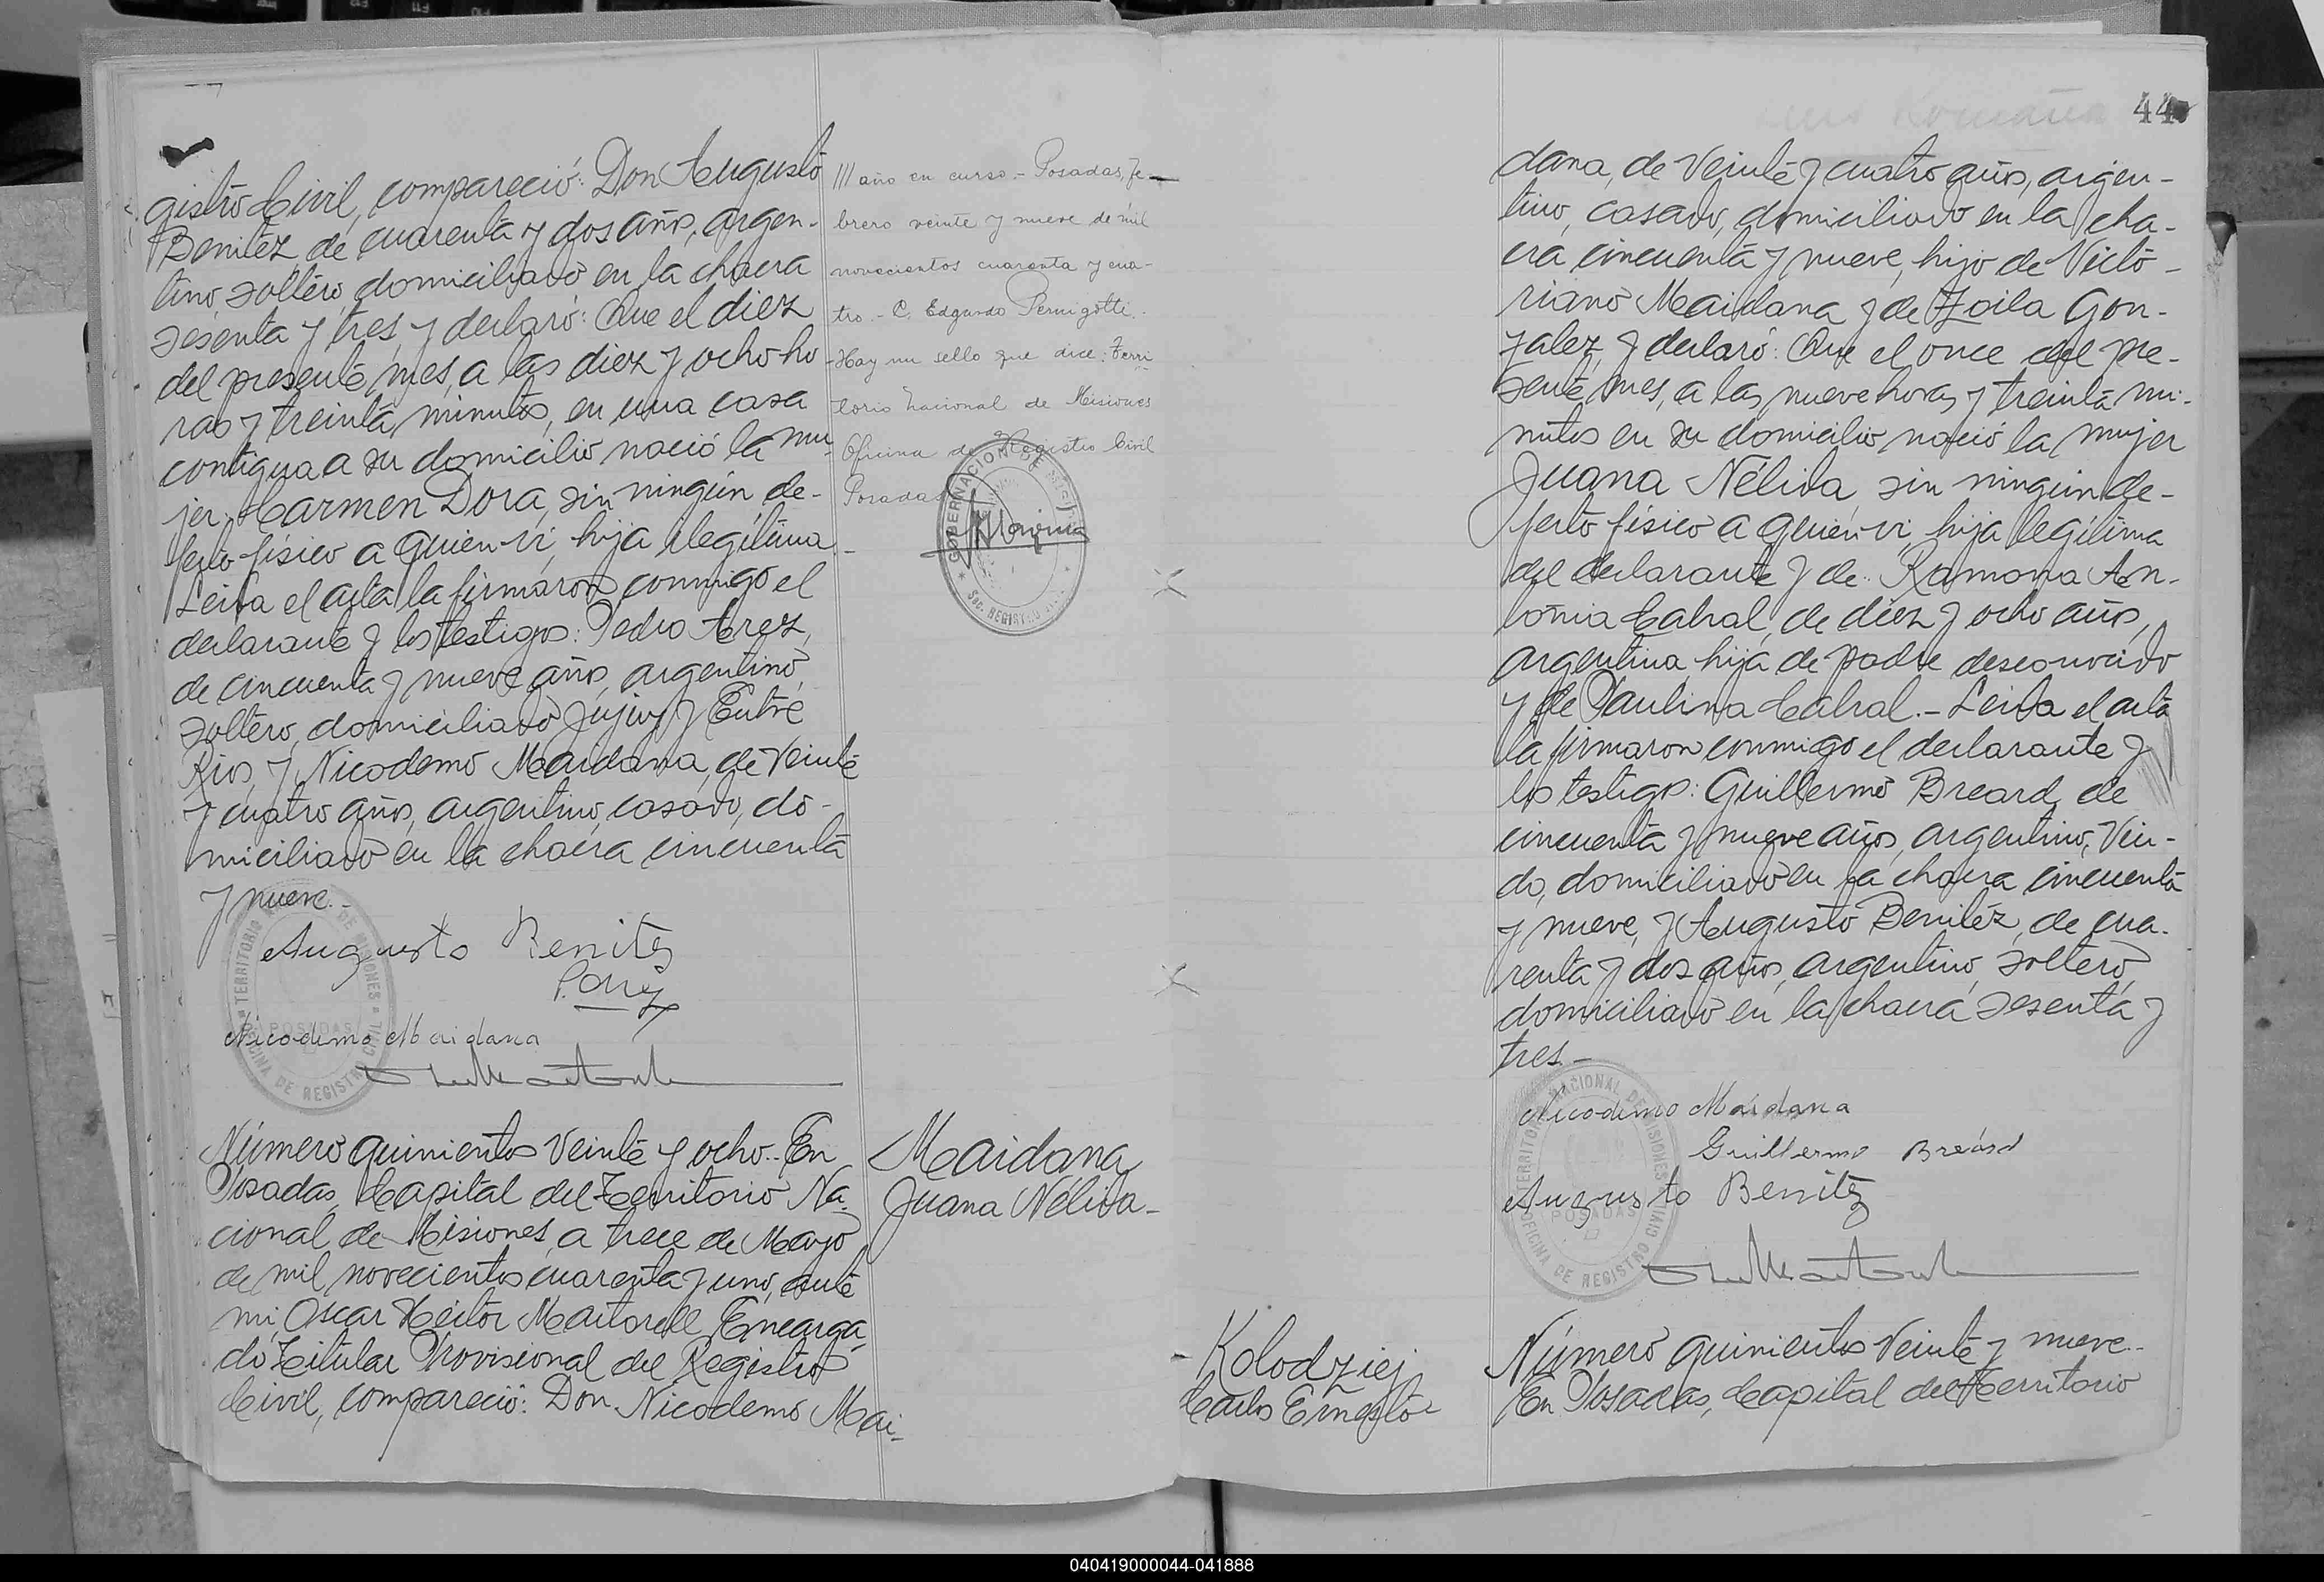 gistro Civil, compareció: Don Augusto
Benitez de cuarenta y dos años, argen-
tino, soltero, domiciliado en la chacra
sesenta y tres, y declaró: Que el diez
del presente mes, a las diez y ocho ho-
ras y treinta minutos, en una casa
contigua a su domicilio nació la mu-
jer: Carmen Dora, sin ningún de-
fecto físico a quien vi, hija ilegítima
Leida el acta la firmaron conmigo el
declarante y los testigos: Pedro
de cincuenta y nueve años, argentino,
soltero, domiciliado Jujuy y Entre
Rios, y Nicodemo Maidana, de veinte
y cuatro años, argentino, casado, do-
miciliado en la chacra cincuenta
y nueve.-
Augusto Benitez
Nicodemo Maidana
TERRITORIO NACIONAL DE MISIONES
OFICINA DE REGISTRO CIVIL
POSADAS
Número quinientos veinte y ocho.- En
Posadas, Capital del Territorio Na-
cional de Misiones, a trece de Mayo
de mil novecientos cuarenta y uno, ante
mi, Oscar Héctor Martorell, Encarga-
do Titular Provisional del Registro
Civil, compareció: Don Nicodemo Mai-
III año en curso.- Posadas, Fe-
brero veinte y nueve de mil
novecientos cuarenta y cua-
tro.- C. Edgardo Pernigotti.
-Hay un sello que dice: Terri-
torio Nacional de Misiones
Oficina de Registro Civil
Posadas
GOBERNACION DE MISIONES
Sec. REGISTRO CIVIL
Maidana
Juana Nélida-
44
dana, de veinte y cuatro años, argen-
tino, casado, domiciliado en la cha-
cra cincuenta y nueve, hijo de Victo-
riano Maidana y de Zoila Gon-
zalez, y declaró: Que el once del pre-
sente mes, a las nueve horas y treinta mi-
nutos en su domicilio nació la mujer
Juana Nélida sin ningún de-
fecto físico a quien vi, hija legítima
del declarante y de Ramona An-
tonia Cabral, de diez y ocho años,
argentina hija de padre desconocido
y de Paulina Cabral.- Leida el acta
la firmaron conmigo el declarante y
los testigos: Guillermo Breard, de
cincuenta y nueve años, argentino, viu-
do, domiciliado en la chacra cincuenta
y nueve, y Augusto Benitez, de cua-
renta y dos años, argentino, soltero,
domiciliado en la chacra sesenta y
tres.-
Nicodemo Maidana
Guillermo Breard
Augusto Benitez
TERRITORIO NACIONAL DE MISIONES
OFICINA DE REGISTRO CIVIL
POSADAS
Kolodziej
Carlos Ernesto-
Número quinientos veinte y nueve.-
En Posadas, Capital del Territorio
040419000044-041888